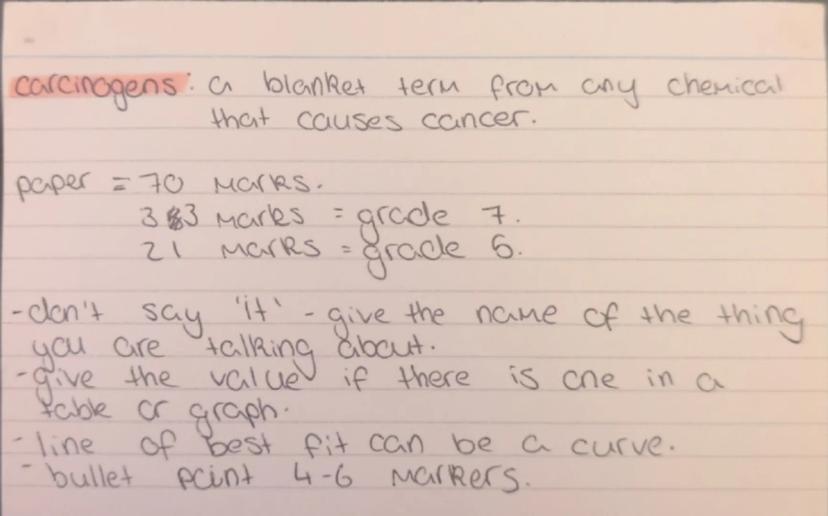 carcinogens: a blanket term from any chemical
that causes cancer.
paper = 70 marks.
33 marks = grade 7.
21 marks = grade 6.
-don't say 'it' - give the name of the thing
you are talking about.
-give the value if there is one in a
table or graph.
-line of best fit can be a curve.
-bullet point 4-6 markers.